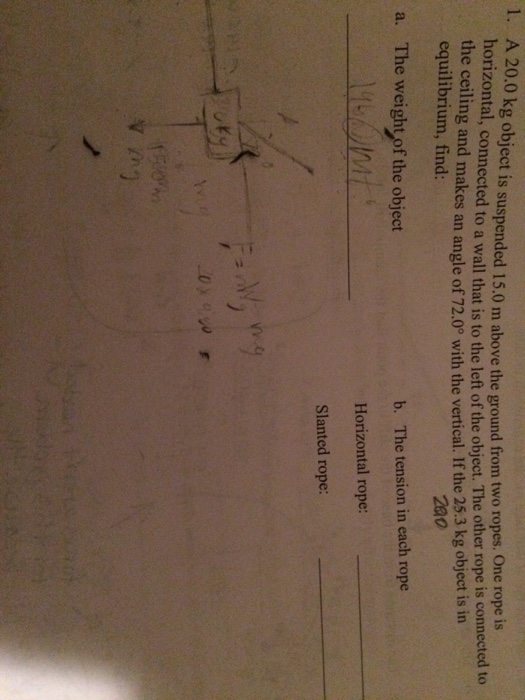 1. A 20.0 kg object is suspended 15.0 m above the ground from two ropes. One rope is
horizontal, connected to a wall that is to the left of the object. The other rope is connected to
the ceiling and makes an angle of 72.0° with the vertical. If the 25.3 kg object is in
equilibrium, find:
a. The weight of the object
b. The tension in each rope
Horizontal rope:
Slanted rope:
mg
20 x 9.80
mg